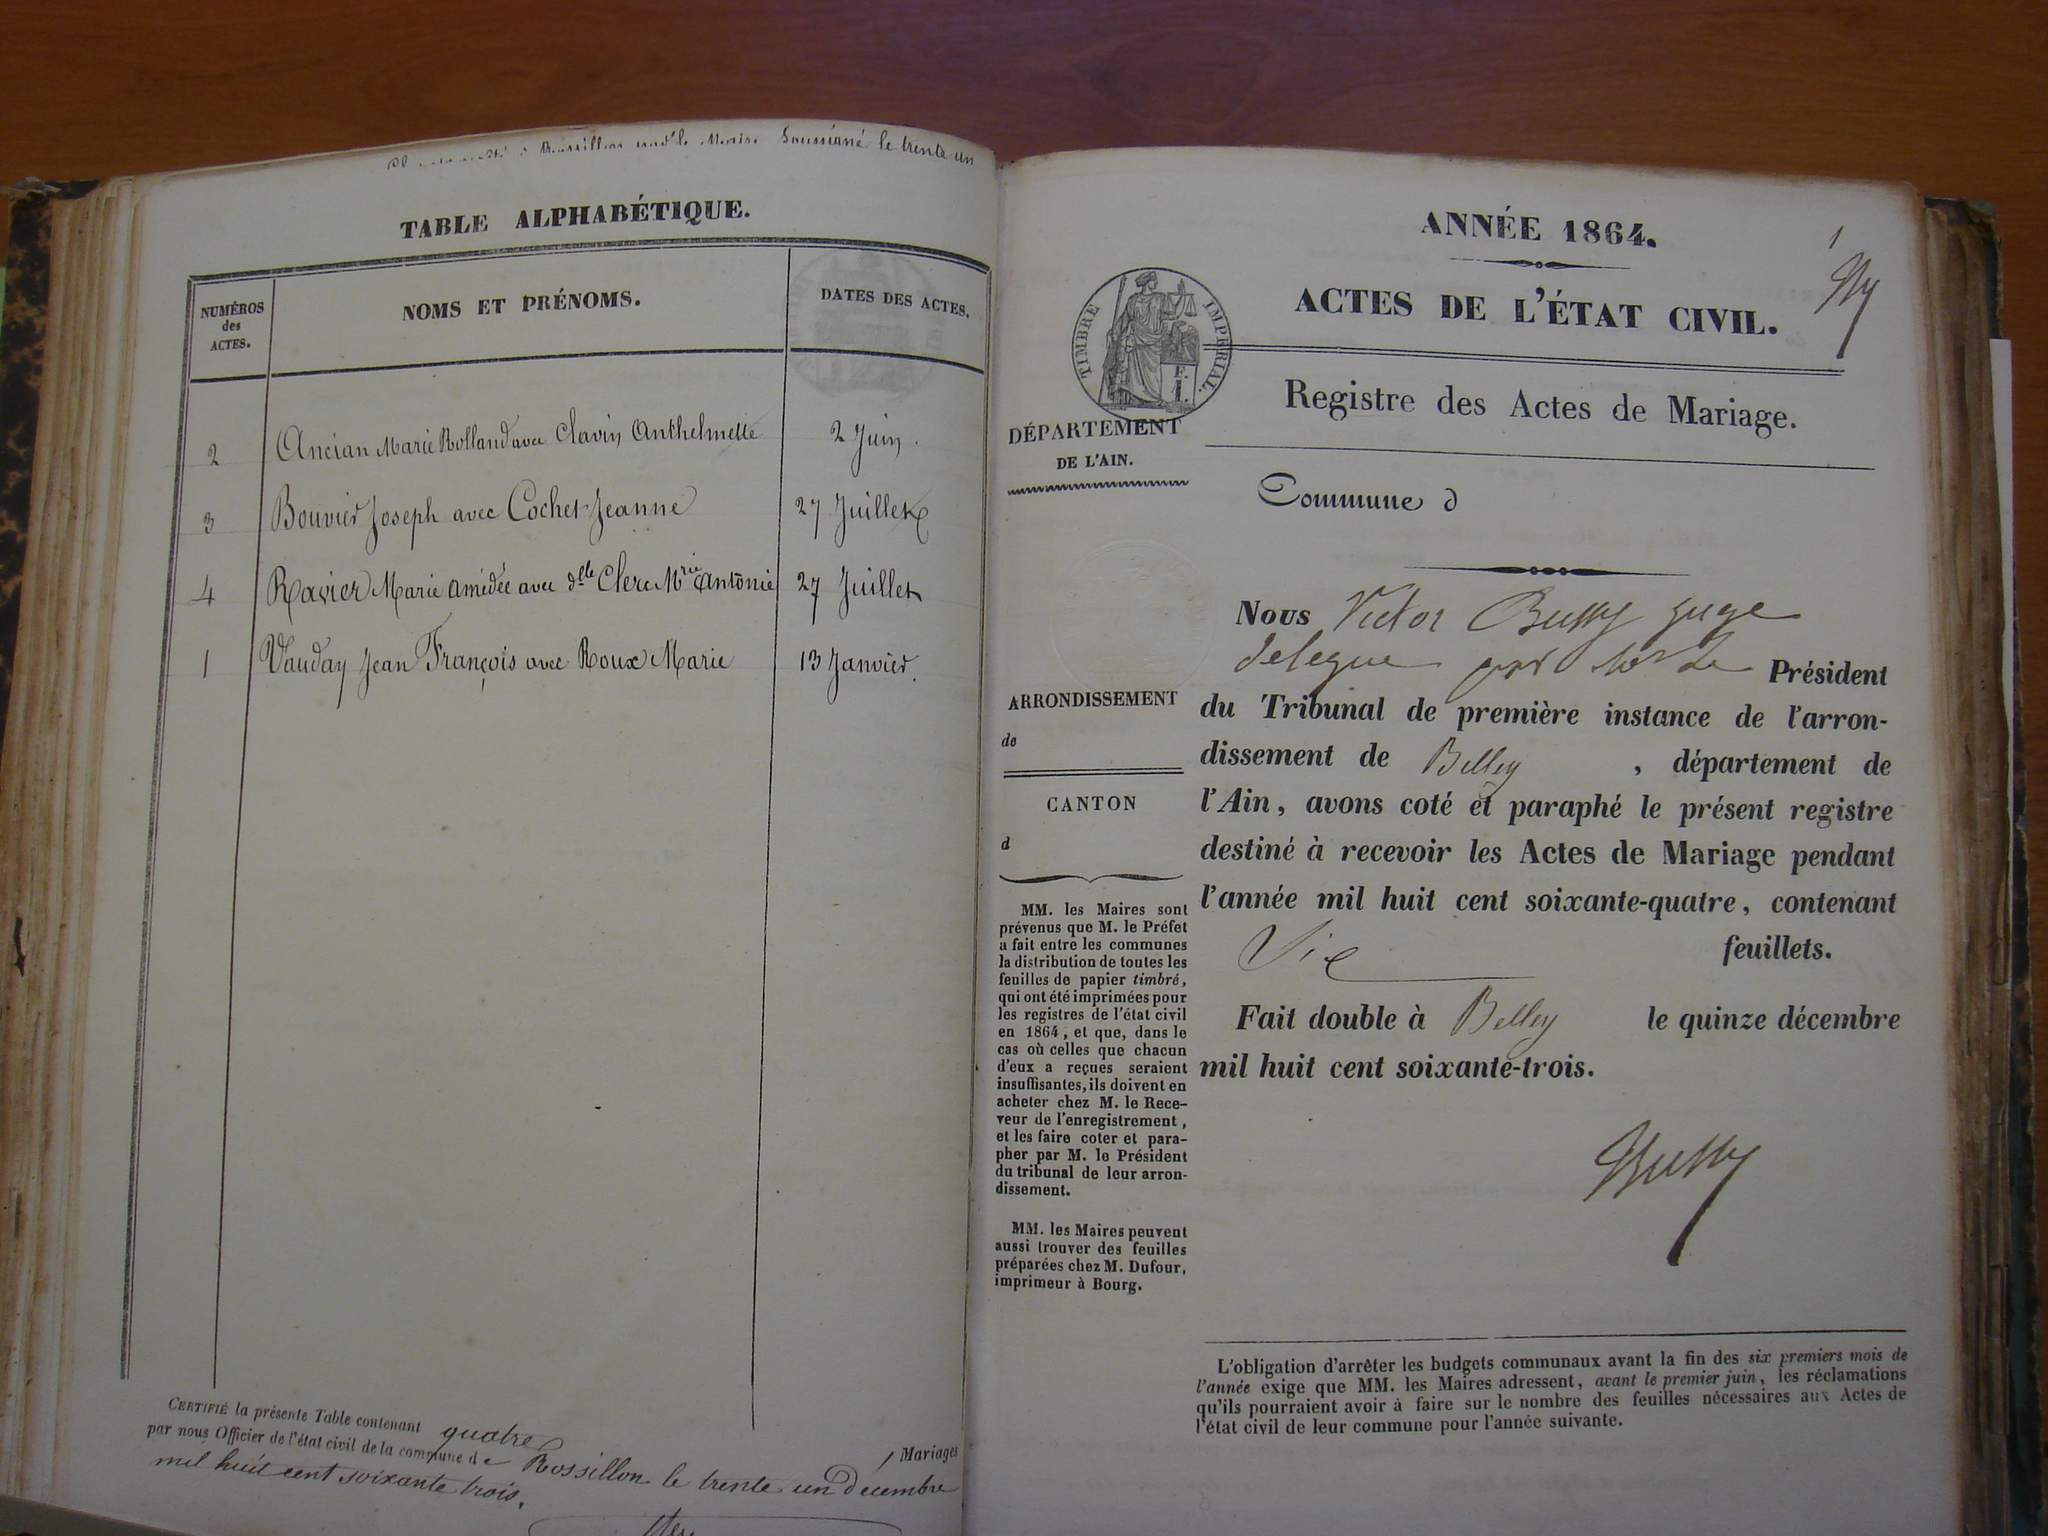 Soussigné le trente un
TABLE ALPHABÉTIQUE.
NUMÉROS
des
ACTES.
NOMS ET PRÉNOMS.
DATES DES ACTES.
2 Ancian Marie Rolland avec Clavin Anthelmette 2 Juin.
3 Bouvier Joseph avec Cochet Jeanne 27 Juillet
4 Ravier Marie Amédée avec dlle Clerc Mrie Antonie 27 Juillet
1 Vauday Jean François avec Roux Marie 13 Janvier.
CERTIFIÉ la présente Table contenant quatre Mariages
par nous Officier de l'état civil de la commune de Rossillon le trente un Décembre
mil huit cent soixante trois.
ANNÉE 1864.
1
ACTES DE L'ÉTAT CIVIL.
TIMBRE IMPÉRIAL.
Registre des Actes de Mariage.
DÉPARTEMENT
DE L'AIN.
Commune d
ARRONDISSEMENT
de
CANTON
d
MM. les Maires sont
prévenus que M. le Préfet
a fait entre les communes
la distribution de toutes les
feuilles de papier timbré,
qui ont été imprimées pour
les registres de l'état civil
en 1864, et que, dans le
cas où celles que chacun
d'eux a reçues seraient
insuffisantes, ils doivent en
acheter chez M. le Rece-
veur de l'enregistrement,
et les faire coter et para-
pher par M. le Président
du tribunal de leur arron-
dissement.
MM. les Maires peuvent
aussi trouver des feuilles
préparées chez M. Dufour,
imprimeur à Bourg.
Nous Victor Bussy Juge
délégué par Mr le Président
du Tribunal de première instance de l'arron-
dissement de Belley , département de
l'Ain, avons coté et paraphé le présent registre
destiné à recevoir les Actes de Mariage pendant
l'année mil huit cent soixante-quatre, contenant
Six feuillets.
Fait double à Belley le quinze décembre
mil huit cent soixante-trois.
Bussy
L'obligation d'arrêter les budgets communaux avant la fin des six premiers mois de
l'année exige que MM. les Maires adressent, avant le premier juin, les réclamations
qu'ils pourraient avoir à faire sur le nombre des feuilles nécessaires aux Actes de
l'état civil de leur commune pour l'année suivante.